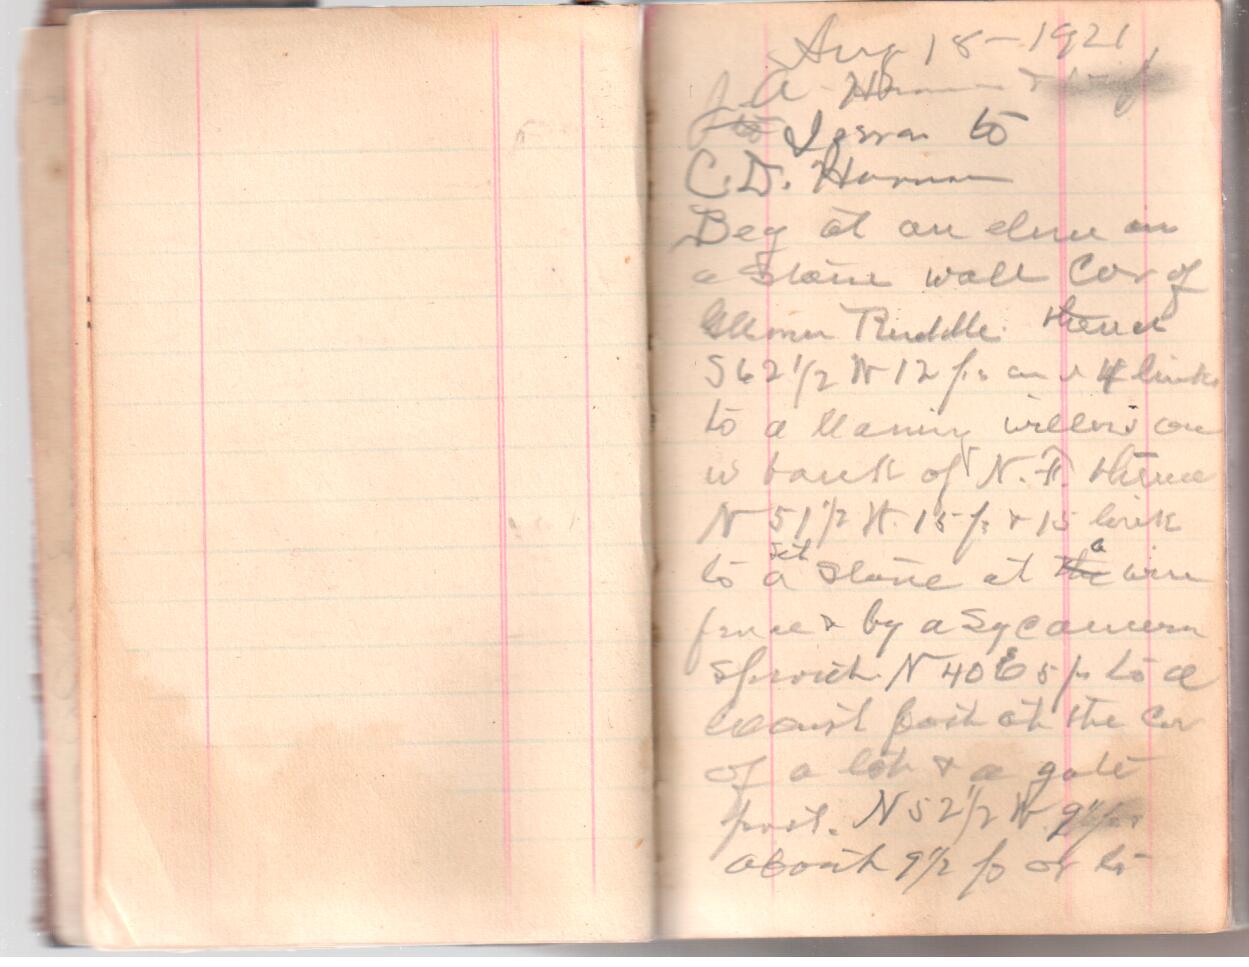 Aug 18-1921,
J A Harman &
to
C.D. Harman
Beg at an elm in
a stone wall Cor of
Ruddle. thence
S 62 1/2 W 12 ps and 4 links
to a leaning willow on
w bank of N.F. thence
N 51 1/2 W. 15 ps & 15 link
to a set stone at the a wire
fence & by a Sycamore
N 40 E 5 ps to a
locust post at the Cor
of a lot & a gate
post. N 52 1/2 W 9 1/2 ps
about 9 1/2 ps or to